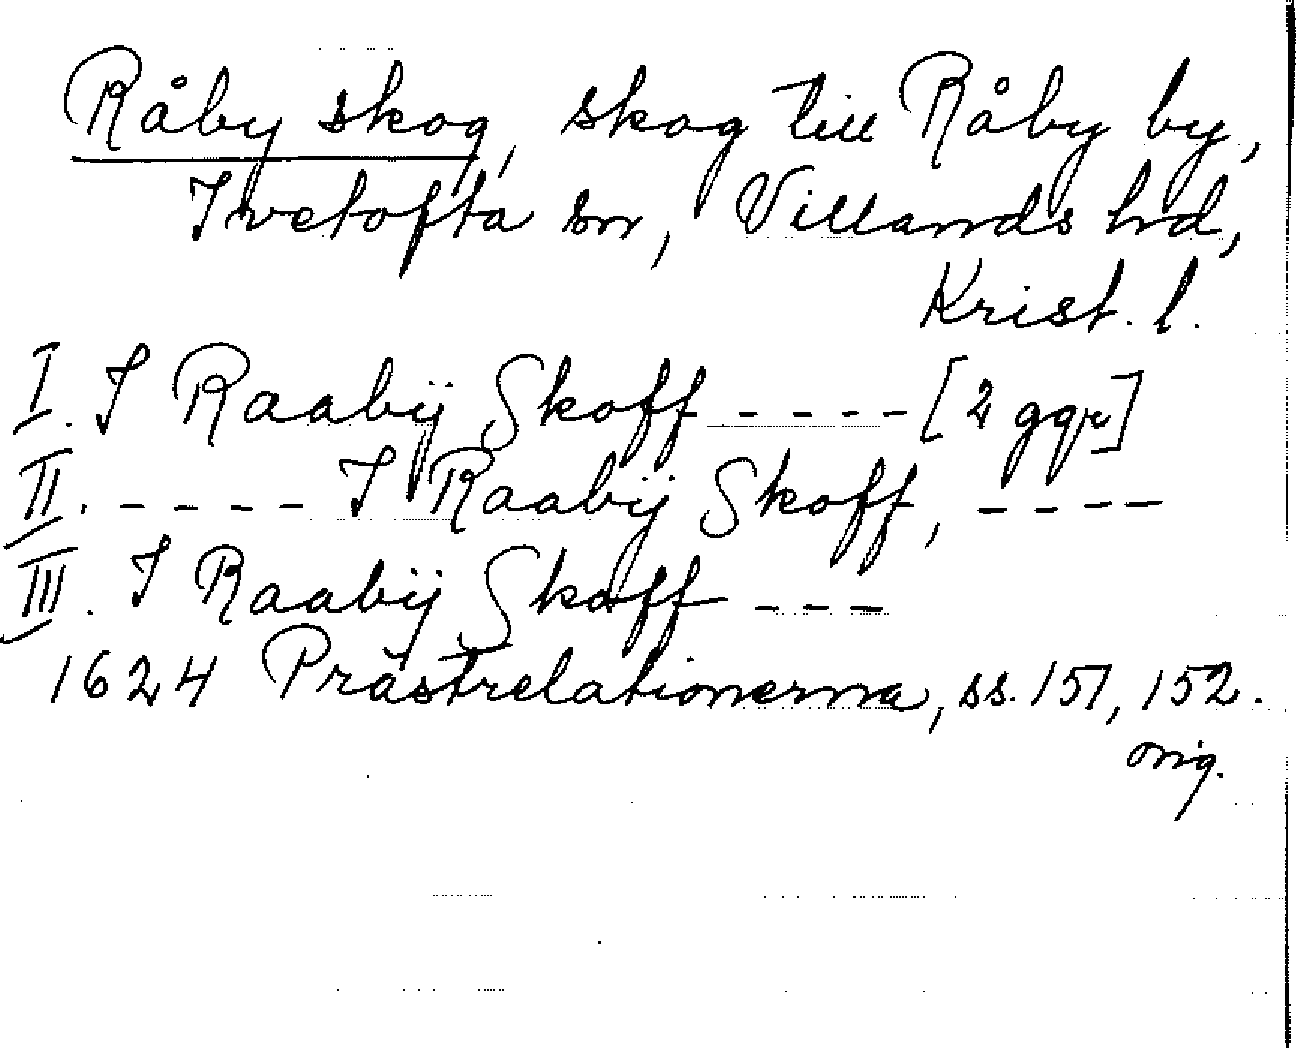 Råby skog, skog till Råby by,
Ivetofta sn, Villands hd,
Krist. l.
I. I Raabÿ Skoff - - - - - [2 ggr]
II. - - - - - I Raabÿ Skoff, - - - -
III. I Raabÿ Skoff - - -
1624 Prästrelationerna, ss. 151, 152.
orig.